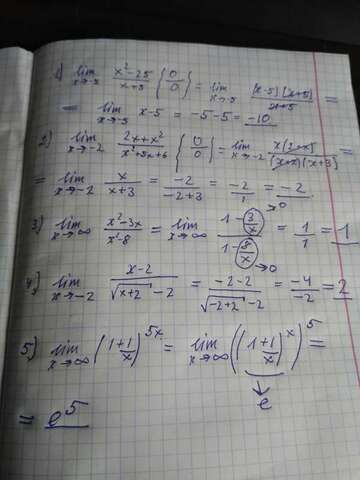 1) lim x→-5 x²-25/x+5 {0/0} = lim x→-5 (x-5)(x+5)/x+5 =
= lim x→-5 x-5 = -5-5 = -10
2) lim x→-2 2x+x²/x²+5x+6 {0/0} = lim x→-2 x(2+x)/(x+2)(x+3) =
= lim x→-2 x/x+3 = -2/-2+3 = -2/1 = -2
3) lim x→∞ x²-3x/x²-8 = lim x→∞ 1-3/x→0/1-8/x→0 = 1/1 = 1
4) lim x→-2 x-2/√x+2-2 = -2-2/√-2+2-2 = -4/-2 = 2
5) lim x→∞ (1+1/x)^5x = lim x→∞ ((1+1/x)^x)^5 =
↓
e
= e⁵